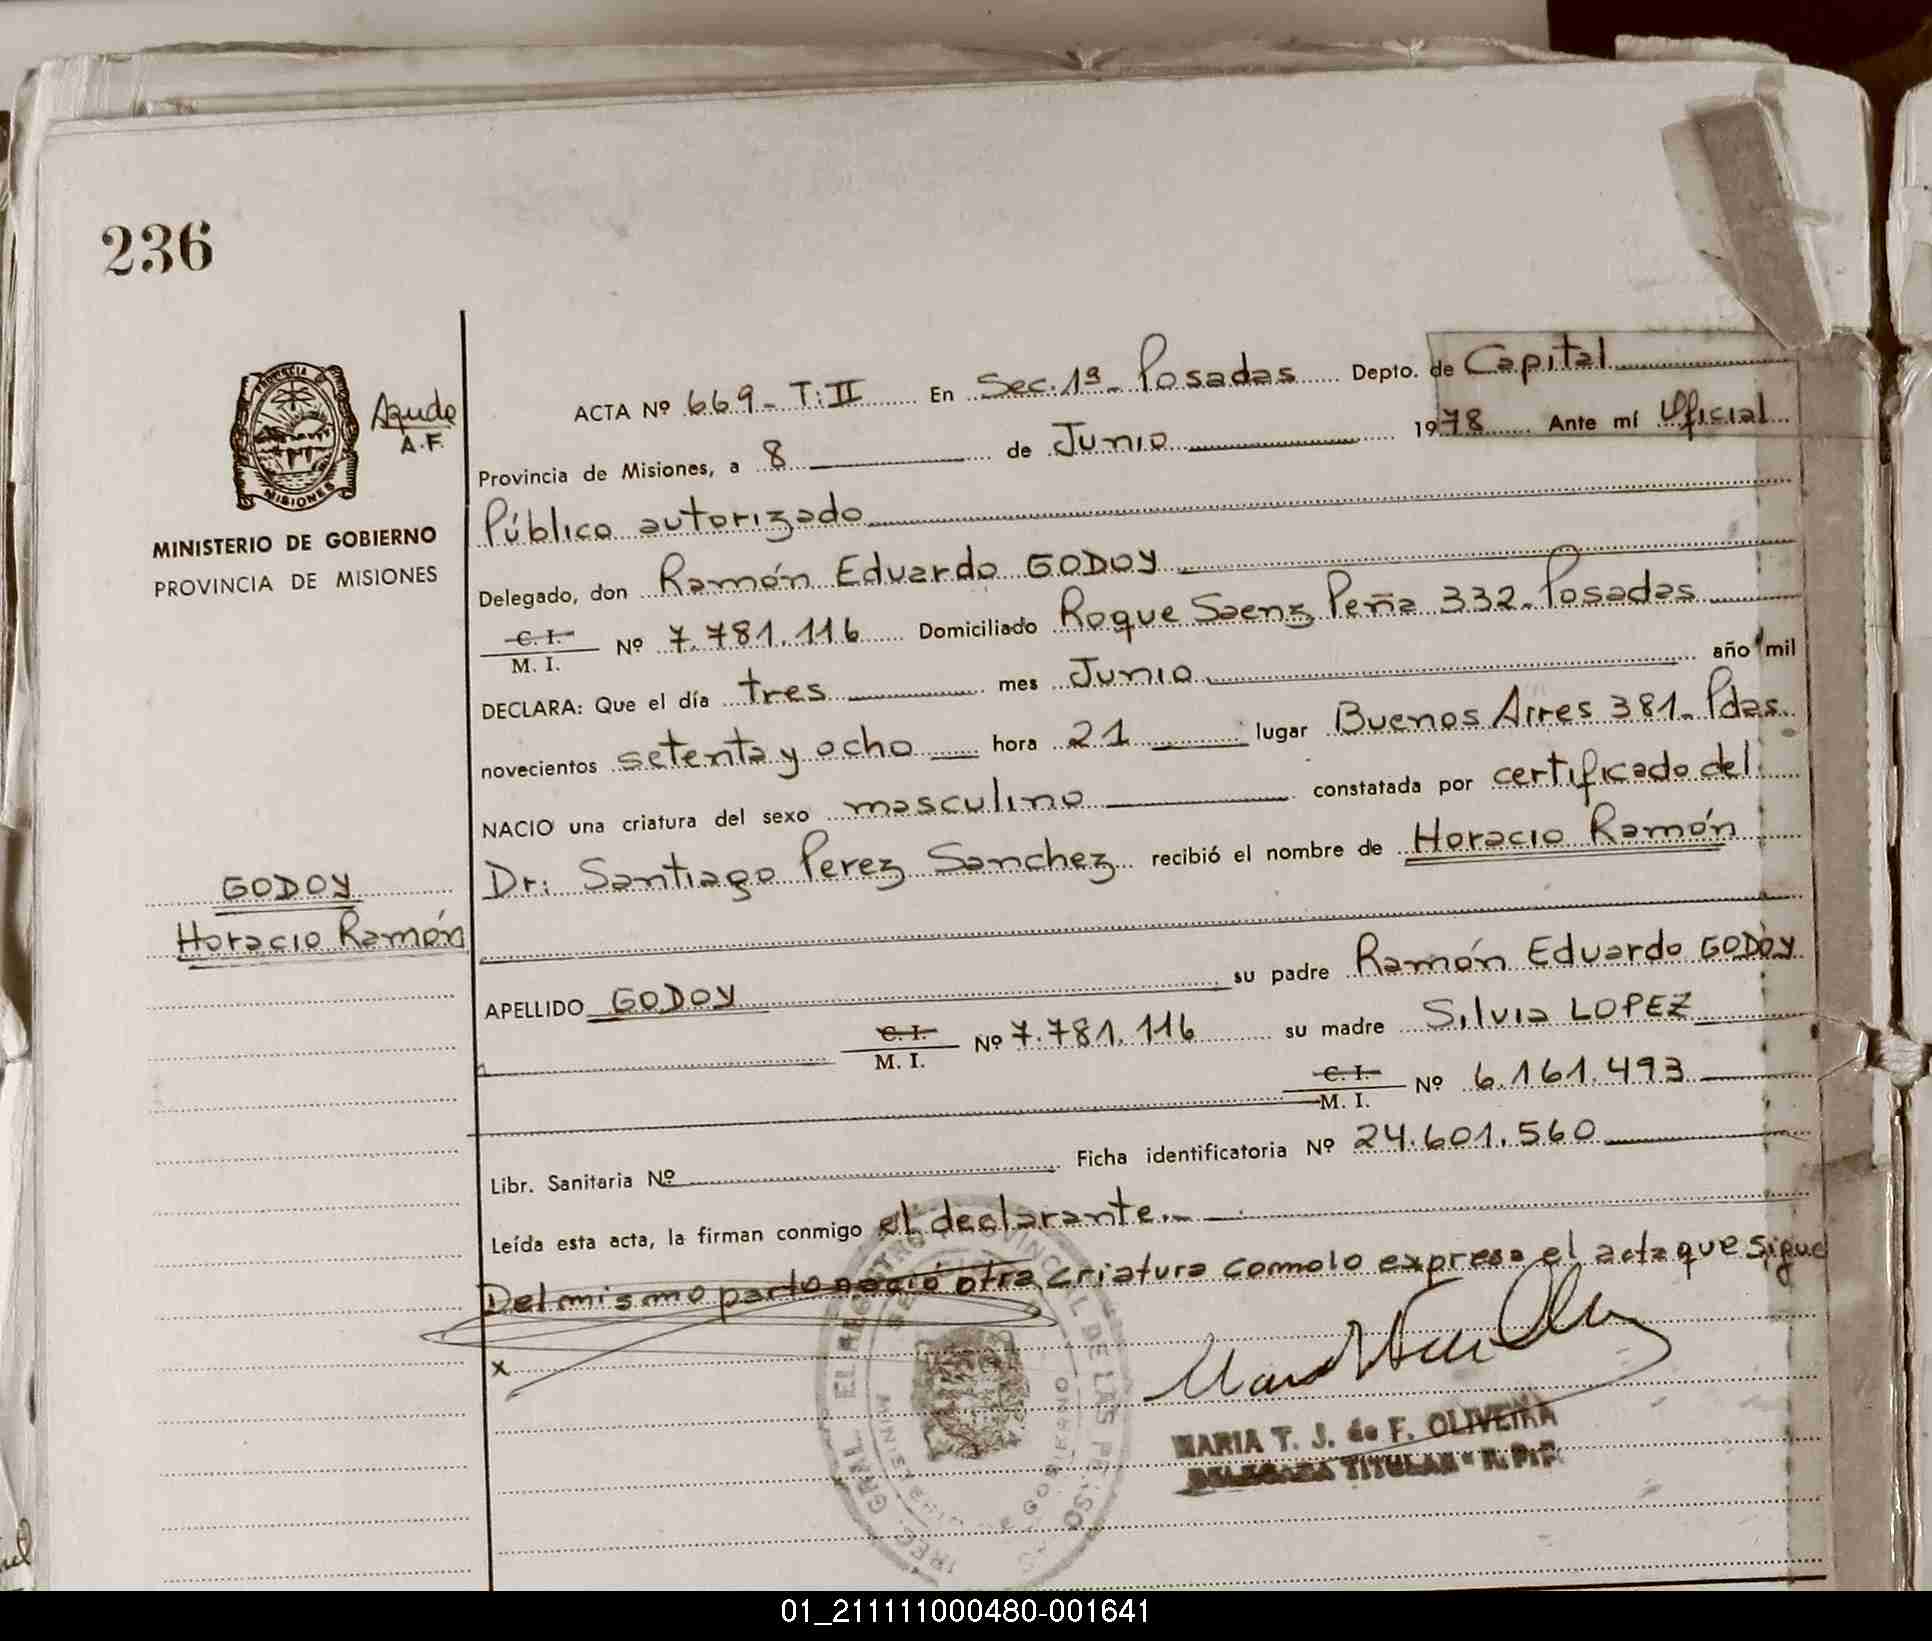 236
PROVINCIA DE
MISIONES
A.F.
MINISTERIO DE GOBIERNO
PROVINCIA DE MISIONES
GODOY
Horacio Ramón
ACTA Nº 669 - T: II En Sec. 1ª - Posadas Depto. de Capital
Provincia de Misiones, a 8 de Junio 1978 Ante mí Oficial
Público autorizado
Delegado, don Ramón Eduardo GODOY
C. I. / M. I. Nº 7.781.116 Domiciliado Roque Saenz Peña 332 - Posadas
DECLARA: Que el día tres mes Junio año mil
novecientos setenta y ocho hora 21 lugar Buenos Aires 381 - Pdas.
NACIO una criatura del sexo masculino constatada por certificado del
Dr: Santiago Perez Sanchez recibió el nombre de Horacio Ramón
APELLIDO GODOY su padre Ramón Eduardo GODOY
C. I. / M. I. Nº 7.781.116 su madre Silvia LOPEZ
C. I. / M. I. Nº 6.161.493
Libr. Sanitaria Nº Ficha identificatoria Nº 24.601.560
Leída esta acta, la firman conmigo el declarante.-
Del mismo parto nació otra criatura como lo expresa el acta que sigue
x
MARIA T. J. de F. OLIVEIRA
DELEGADA TITULAR - R. P. P.
01_211111000480-001641